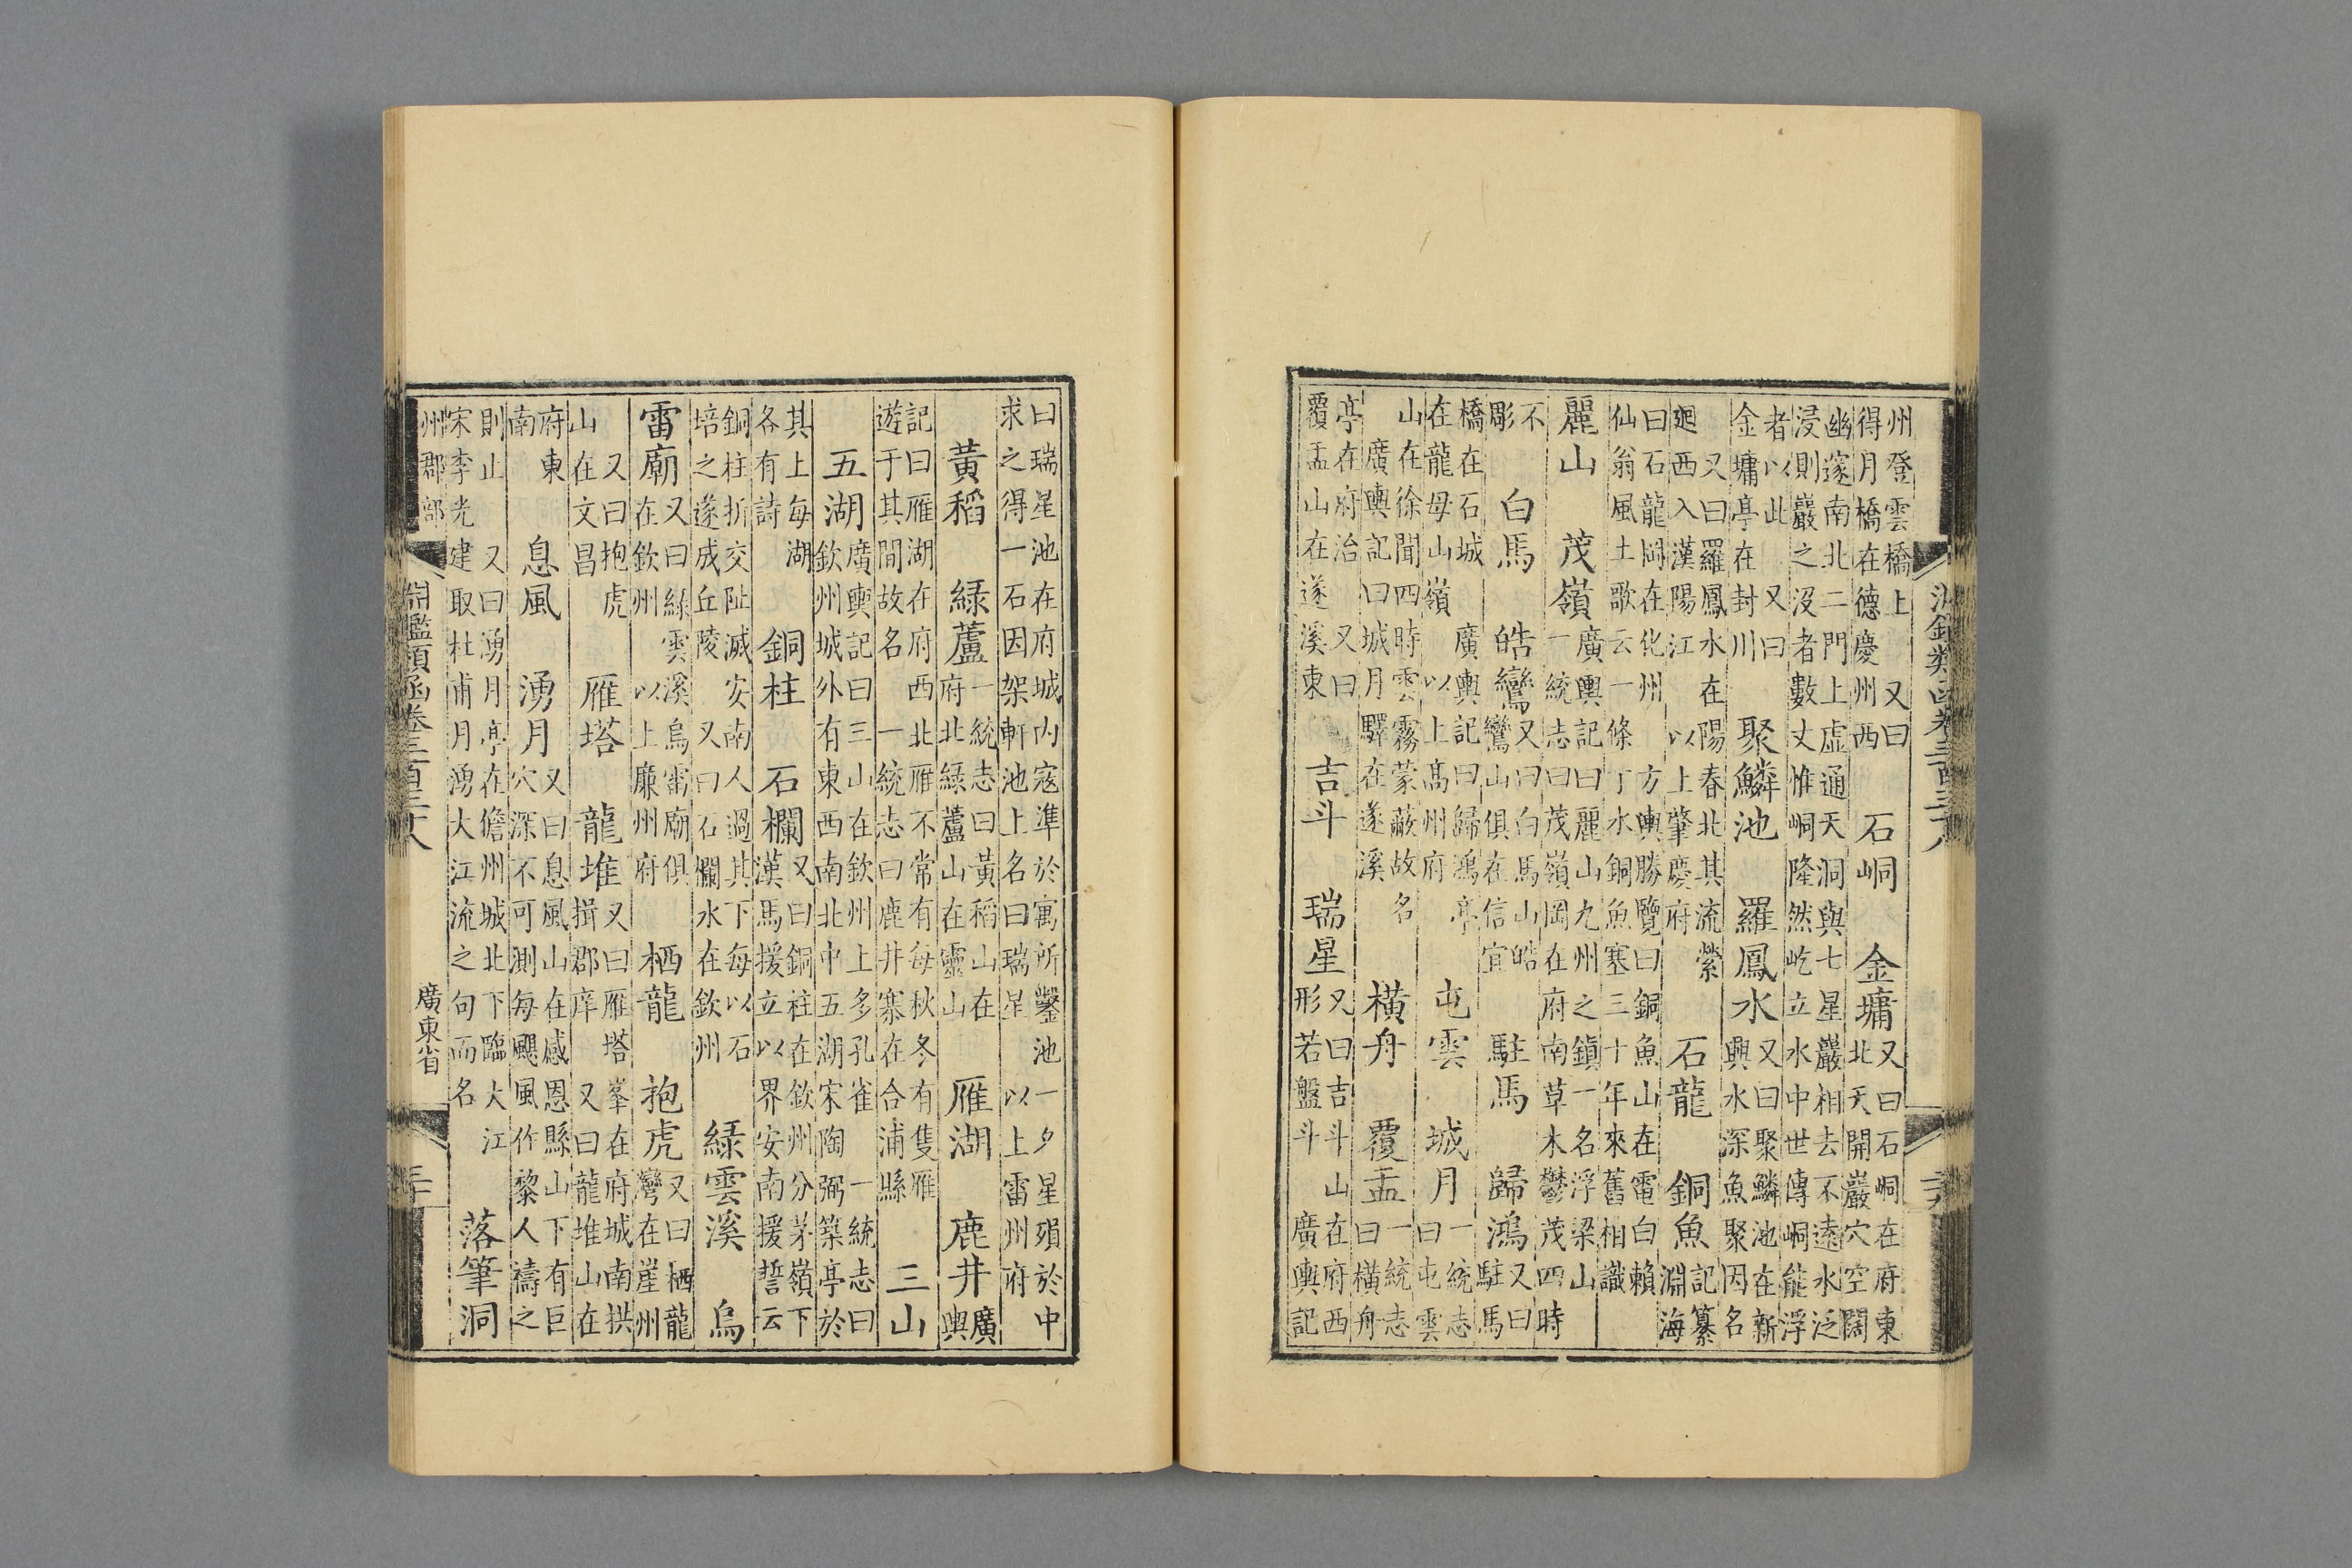 州登雲橋上 又曰 石峒 金墉 又曰石峒在府東
得月橋在德慶州西 北天開巖穴空闊
幽邃南北二門上虛通天洞與七星巖相去不遠水泛
浸則巖之沒者數丈惟峒隆然屹立水中世傳峒能浮
者以此 又曰 聚鱗池 羅鳳水 又曰聚鱗池在新
金墉亭在封川 興水深魚聚因名
又曰羅鳳水在陽春北其流縈 石龍 銅魚 記纂
廻西入漢陽江 以上肇慶府 淵海
曰石龍岡在化州 方輿勝覽曰銅魚山在電白賴
仙翁風土歌云一條丁水銅魚塞三十年來舊相識
麗山 茂嶺 廣輿記曰麗山九州之鎮一名浮梁山
一統志曰茂嶺岡在府南草木鬱茂四時
不 白馬 皓鸞 又曰白馬山皓 駐馬 歸鴻 又曰
彫 鸞山俱在信宜 駐馬
橋在石城 廣輿記曰歸鴻亭 屯雲 城月 一統志
在龍母山嶺 以上高州府 曰屯雲
山在徐聞四時雲霧蒙蔽故名 橫舟 覆盂 一統志
廣輿記曰城月驛在遂溪 曰橫舟
亭在府治 又曰 吉斗 瑞星 又曰吉斗山在府西
覆盂山在遂溪東 形若盤斗 廣輿記
曰瑞星池在府城內寇準於寓所鑿池一夕星殞於中
求之得一石因架軒池上名曰瑞星 以上雷州府
黃稻 綠蘆 一統志曰黃稻山在 雁湖 鹿井 廣
府北綠蘆山在靈山 輿
記曰雁湖在府西北雁不常有每秋冬有隻雁 三山
遊于其間故名 一統志曰鹿井寨在合浦縣
五湖 廣輿記曰三山在欽州上多孔雀 一統志曰
欽州城外有東西南北中五湖宋陶弼築亭於
其上每湖 銅柱 石欄 又曰銅柱在欽州分茅嶺下
各有詩 漢馬援立以界安南援誓云
銅柱折交阯滅安南人過其下每以石 綠雲溪 烏
培之遂成丘陵 又曰石欄水在欽州
雷廟 又曰綠雲溪烏雷廟俱 栖龍 抱虎 又曰栖龍
在欽州 以上廉州府 灣在崖州
又曰抱虎 雁塔 龍堆 又曰雁塔峯在府城南拱
山在文昌 揖郡庠 又曰龍堆山在
府東 息風 湧月 又曰息風山在感恩縣山下有巨
南 穴深不可測每颶風作黎人禱之
則止 又曰湧月亭在儋州城北下臨大江 落筆洞
宋李光建取杜甫月湧大江流之句而名
淵鑑類函卷三百三十八 廣東省